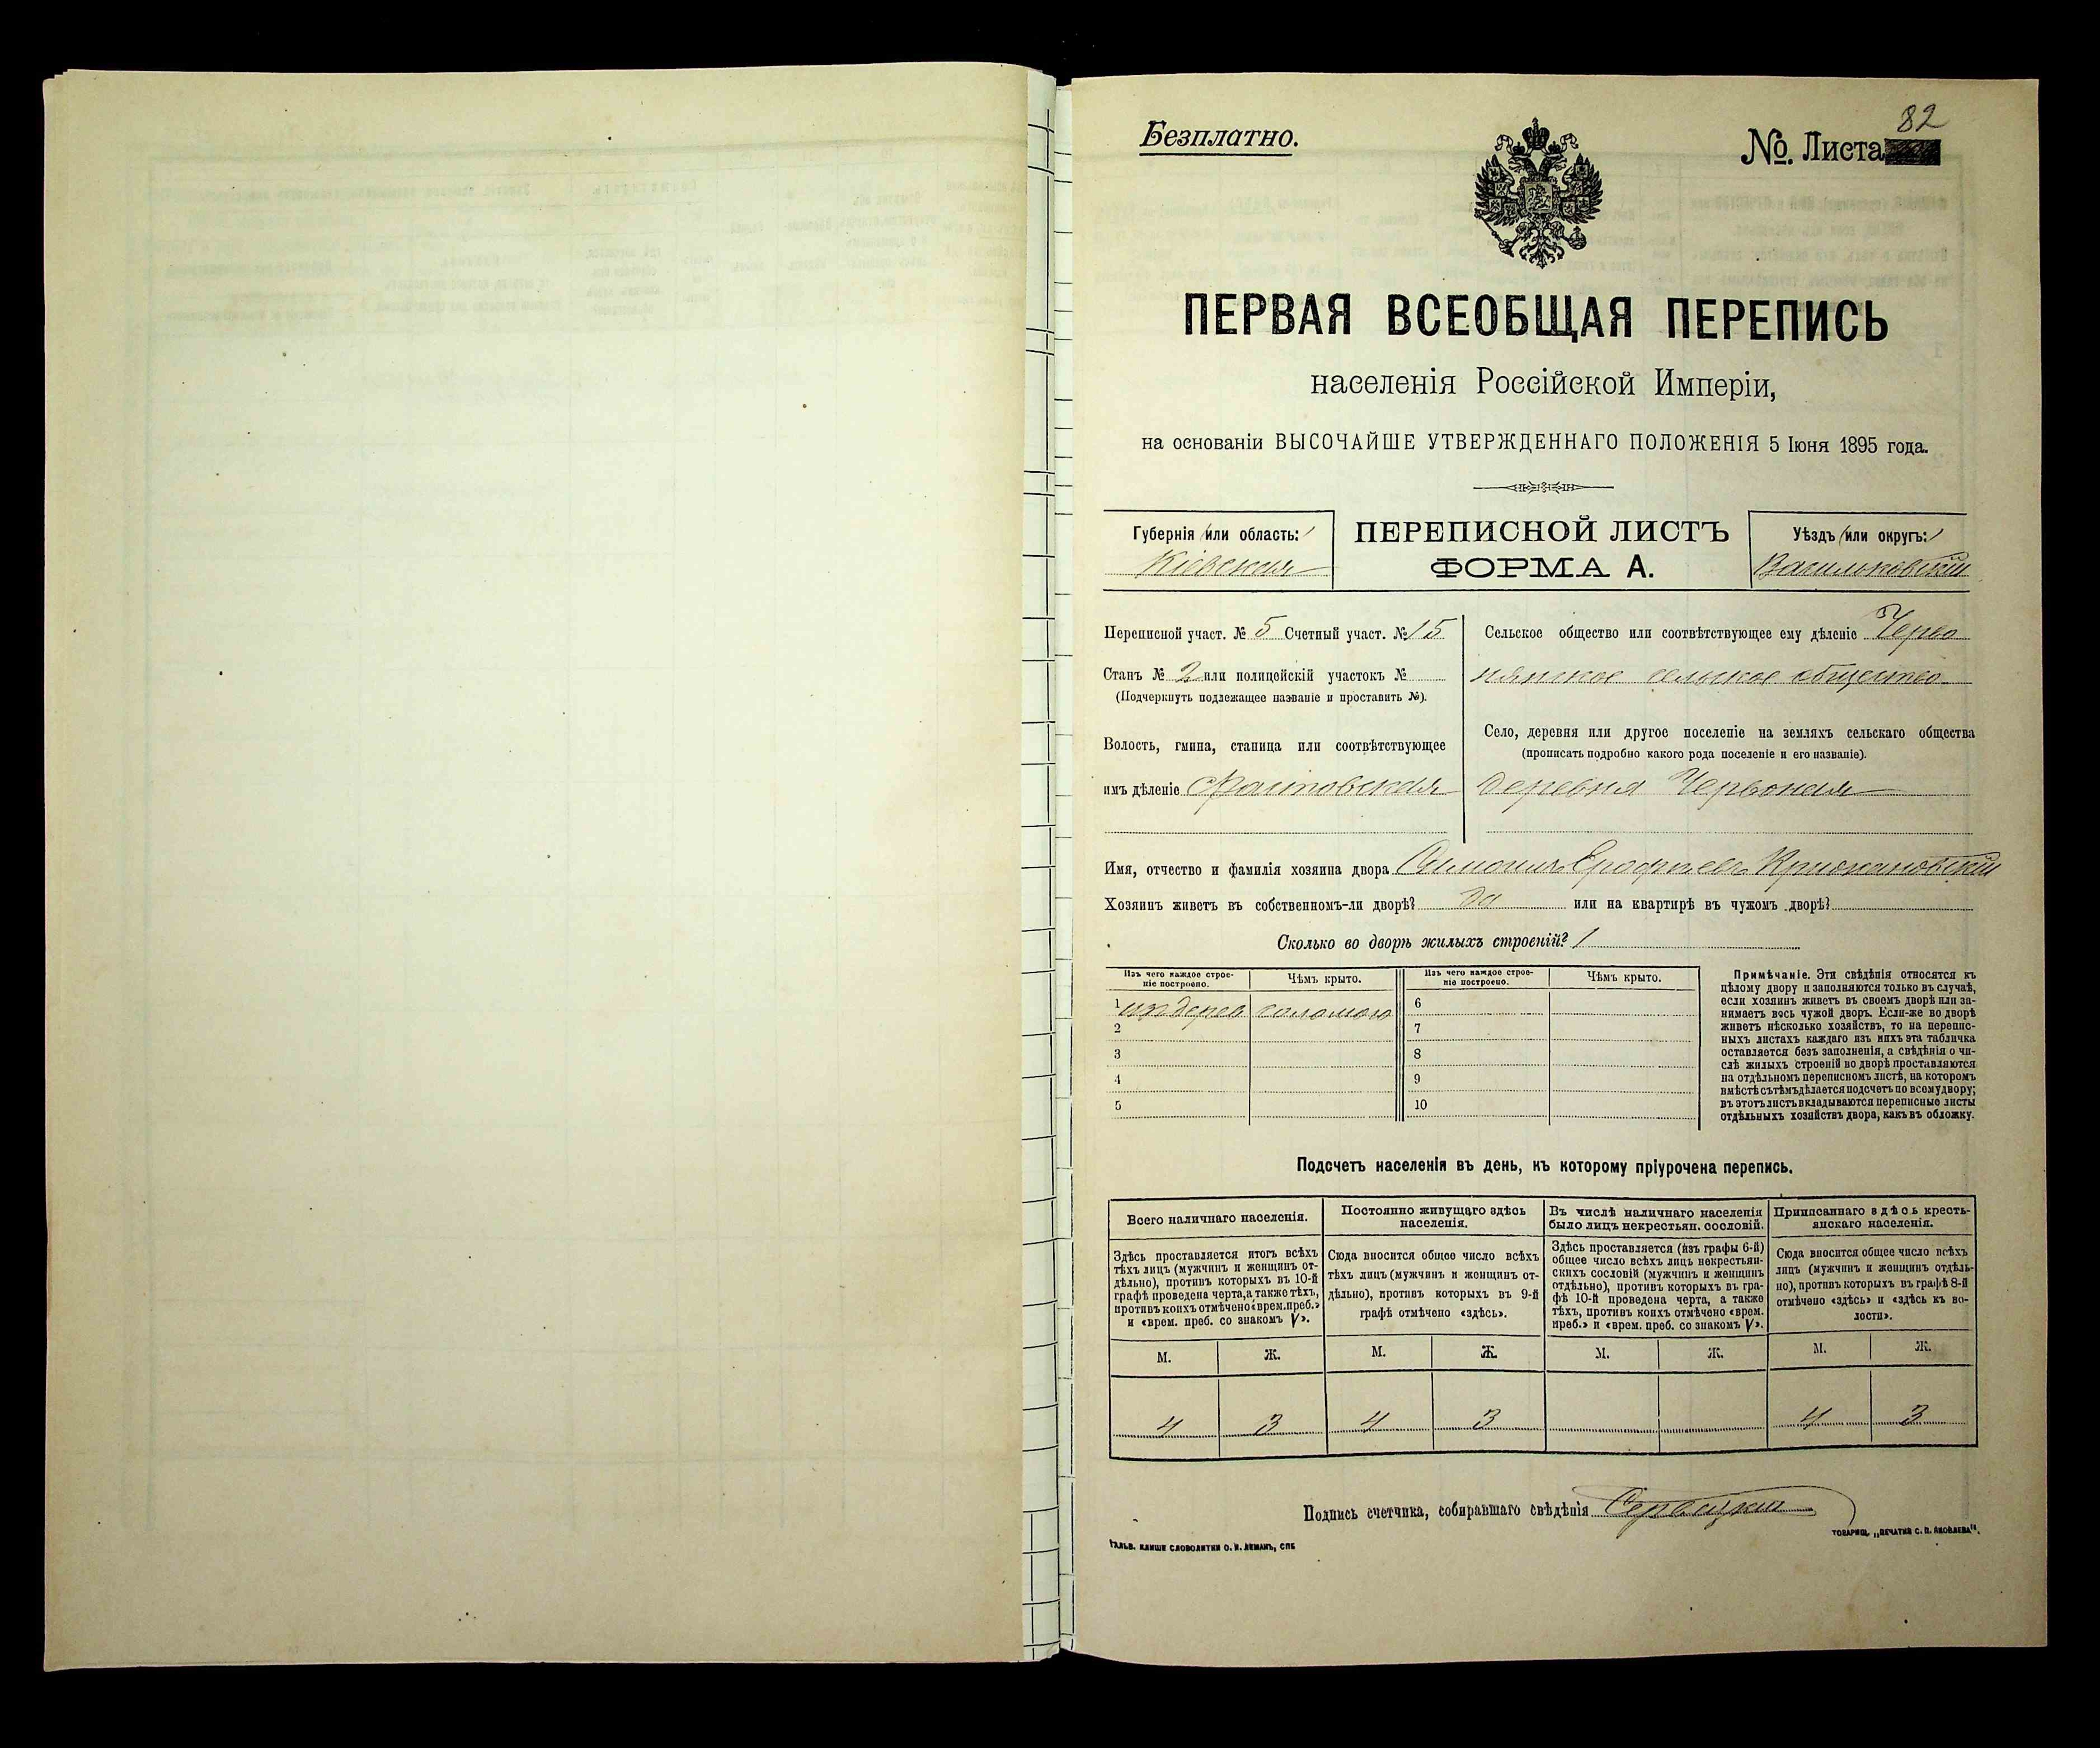 Безплатно.
82
№. Листа
ПЕРВАЯ ВСЕОБЩАЯ ПЕРЕПИСЬ
населенія Россійской Имперіи,
на основаніи ВЫСОЧАЙШЕ УТВЕРЖДЕННАГО ПОЛОЖЕНІЯ 5 Іюня 1895 года.
Губернія (или область:)
Кіевская
ПЕРЕПИСНОЙ ЛИСТЪ
ФОРМА А.
Уѣздъ (или округъ:)
Васильковскій
Переписной участ. № 5 Счетный участ. № 15
Станъ № 2 или полицейскій участокъ №
(Подчеркнуть подлежащее названіе и проставить №).
Волость, гмина, станица или соотвѣтствующее
имъ дѣленіе Фастовская
Сельское общество или соотвѣтствующее ему дѣленіе Черво
нянское сельское общество
Село, деревня или другое поселеніе на земляхъ сельскаго общества
(прописать подробно какого рода поселеніе и его названіе).
деревня Червоная
Имя, отчество и фамилія хозяина двора Ерофѣевъ Крижановскій
Хозяинъ живетъ въ собственномъ-ли дворѣ? да или на квартирѣ въ чужомъ дворѣ?
Сколько во дворѣ жилыхъ строеній? 1
Изъ чего каждое строе-
ніе построено.
Чѣмъ крыто.
Изъ чего каждое строе-
ніе построено.
Чѣмъ крыто.
1 изъ дерев соломою
2
3
4
5
6
7
8
9
10
Примѣчаніе. Эти свѣдѣнія относятся къ
цѣлому двору и заполняются только въ случаѣ,
если хозяинъ живетъ въ своемъ дворѣ или за-
нимаетъ весь чужой дворъ. Если-же во дворѣ
живетъ нѣсколько хозяйствъ, то на перепис-
ныхъ листахъ каждаго изъ нихъ эта табличка
оставляется безъ заполненія, а свѣдѣнія о чи-
слѣ жилыхъ строеній во дворѣ проставляются
на отдѣльномъ переписномъ листѣ, на которомъ
вмѣстѣ съ тѣмъ дѣлается подсчетъ по всему двору;
въ этотъ листъ вкладываются переписные листы
отдѣльныхъ хозяйствъ двора, какъ въ обложку.
Подсчетъ населенія въ день, къ которому пріурочена перепись.
Всего наличнаго населенія.
Здѣсь проставляется итогъ всѣхъ
тѣхъ лицъ (мужчинъ и женщинъ от-
дѣльно), противъ которыхъ въ 10-й
графѣ проведена черта, а также тѣхъ,
противъ коихъ отмѣчено «врем. преб.»
и «врем. преб. со знакомъ V».
Постоянно живущаго здѣсь
населенія.
Сюда вносится общее число всѣхъ
тѣхъ лицъ (мужчинъ и женщинъ от-
дѣльно), противъ которыхъ въ 9-й
графѣ отмѣчено «здѣсь».
Въ числѣ наличнаго населенія
было лицъ некрестьян. сословій.
Здѣсь проставляется (изъ графы 6-й)
общее число всѣхъ лицъ некрестьян-
скихъ сословій (мужчинъ и женщинъ
отдѣльно), противъ которыхъ въ гра-
фѣ 10-й проведена черта, а также
тѣхъ, противъ коихъ отмѣчено «врем.
преб.» и «врем. преб. со знакомъ V».
Приписаннаго здѣсь кресть-
янскаго населенія.
Сюда вносится общее число всѣхъ
лицъ (мужчинъ и женщинъ отдѣль-
но), противъ которыхъ въ графѣ 8-й
отмѣчено «здѣсь» и «здѣсь къ во-
лости».
М. Ж. М. Ж. М. Ж. М. Ж.
4 3 4 3 4 3
Подпись счетчика, собиравшаго свѣдѣнія
ГАЛЬВ. КЛИШЕ СЛОВОЛИТНИ О. И. ЛЕМАНЪ, СПБ
ТОВАРИЩ. „ПЕЧАТНЯ С. П. ЯКОВЛЕВА".